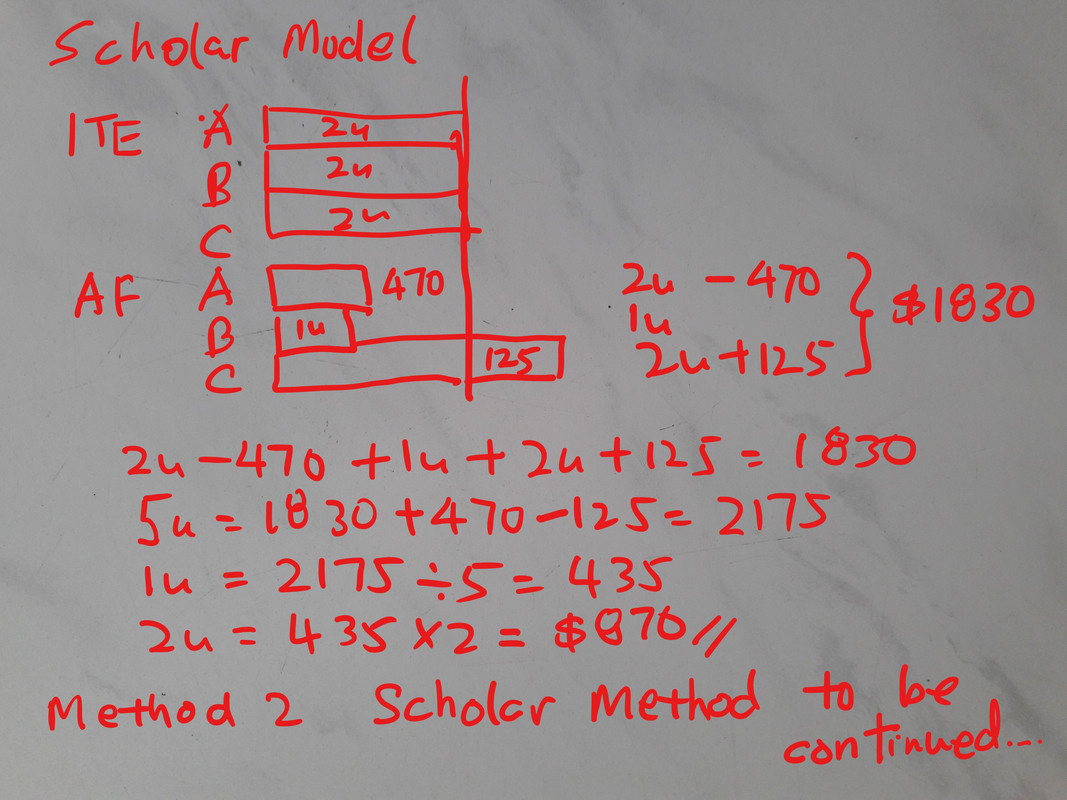 Scholar Model
ITE A 2u
B 2u
C 2u
AF A 470
B 1u
C 125
2u - 470
1u
2u + 125
} $1830
2u - 470 + 1u + 2u + 125 = 1830
5u = 1830 + 470 - 125 = 2175
1u = 2175 ÷ 5 = 435
2u = 435 × 2 = $870 //
Method 2 Scholar Method to be
continued...